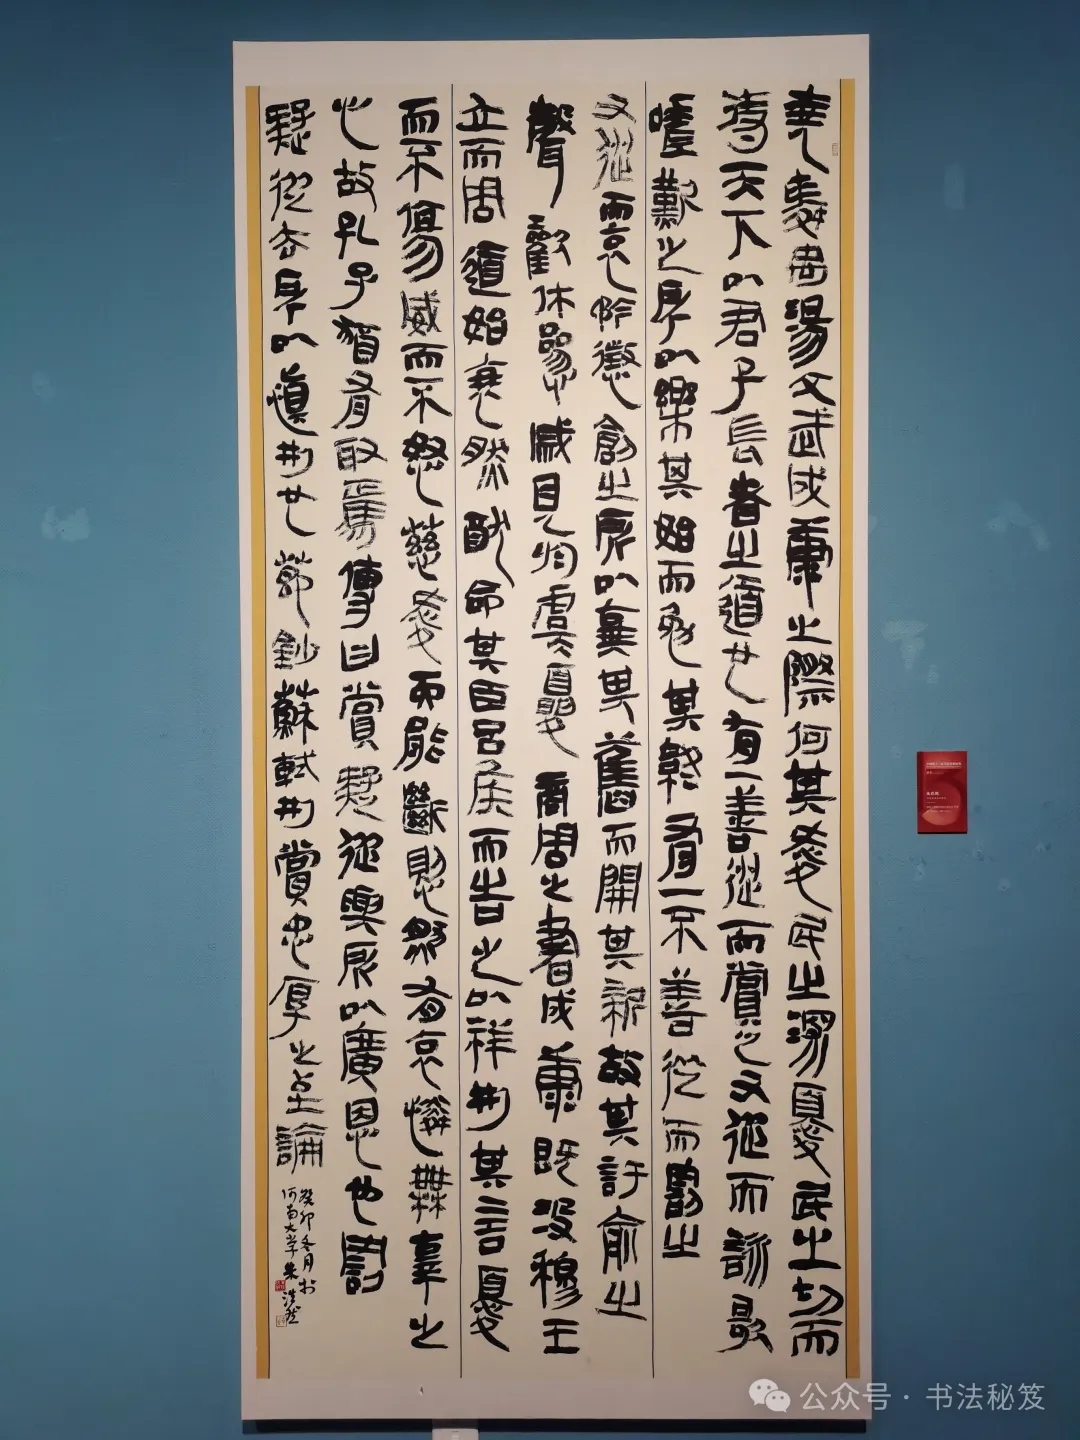 堯舜禹湯文武成康之際何其愛民之深憂民之切而
待天下以君子長者之道也有一善從而賞之又從而詠歌
嗟歎之所以樂其始而勉其終有一不善從而罰之
又從而哀矜懲創之所以棄其舊而開其新故其吁俞之
聲歡休慘戚見於虞夏商周之書成康既沒穆王
立而周道始衰然猶命其臣呂侯而告之以祥刑其言憂
而不傷威而不怒慈愛而能斷惻然有哀憐無辜之
心故孔子猶有取焉傳曰賞疑從與所以廣恩也罰
疑從去所以慎刑也節鈔蘇軾刑賞忠厚之至論
癸卯冬月於
河南大学朱浩然
公众号·书法秘笈